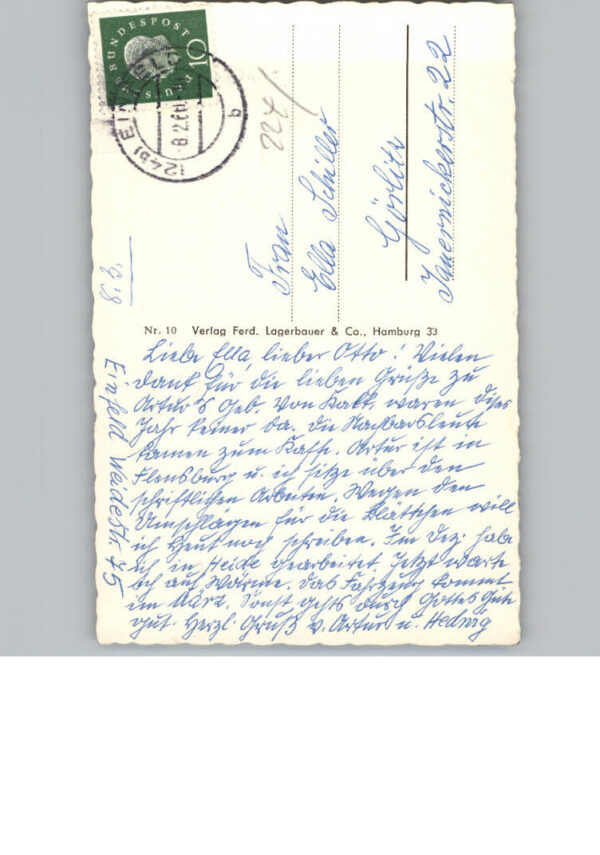 DEUTSCHE BUNDESPOST
10
(24b) EINFELD
-8.2.60
b
224/
Frau
Ella Schiller
Görlitz
Jauernickerstr. 22
Nr. 10 Verlag Ferd. Lagerbauer & Co., Hamburg 33
Einfeld Weidestr. 45
Liebe Ella, lieber Otto! Vielen
Dank für die lieben Grüße zu
Artur's Geb. Von Kalt. waren dises
Jahr keiner da. Die Nachbarsleute
kamen zum Kaffe. Artur ist in
Flensburg u. ich sitze über den
schriftlichen Arbeiten. Wegen den
Umschlägen für die Blättchen will
ich heut noch schreiben. Im Dez. habe
ich in Heide gearbeitet. Jetzt warte
ich auf Wärme. Das Fahrzeug kommt
im März. Sonst gehts durch Gottes Güte
gut. Herzl. Gruß v. Artur u. Hedwig